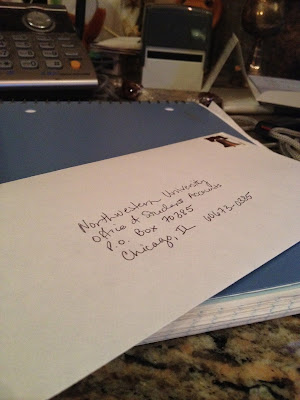 Northwestern University
Office of Student Accounts
P.O. Box 70385
Chicago, IL 60673-0385